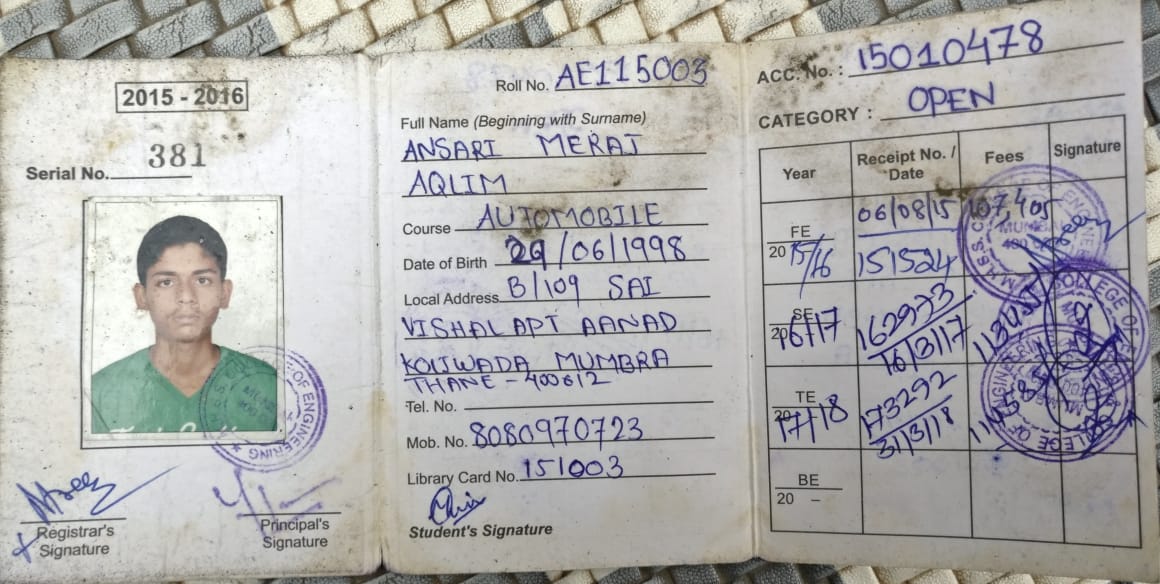 2015 - 2016
Serial No. 381
Registrar's
Signature
Principal's
Signature
Roll No. AE115003
Full Name (Beginning with Surname)
ANSARI MERAJ
AQLIM
Course AUTOMOBILE
Date of Birth 29/06/1998
Local Address B/109 SAI
VISHAL APT AANAD
KOLIWADA MUMBRA
THANE - 400612
Tel. No.
Mob. No. 8080970723
Library Card No. 151003
Student's Signature
ACC. No. : 15010478
CATEGORY : OPEN
Year Receipt No. / Date Fees Signature
FE 2015/16 06/08/15 151524 107,405
SE 2016/17 162973 16/3/17
TE 2017/18 173292 31/3/18
BE
20 –
OF ENGINEERING
COLLEGE OF
ENGINEERING
COLLEGE OF